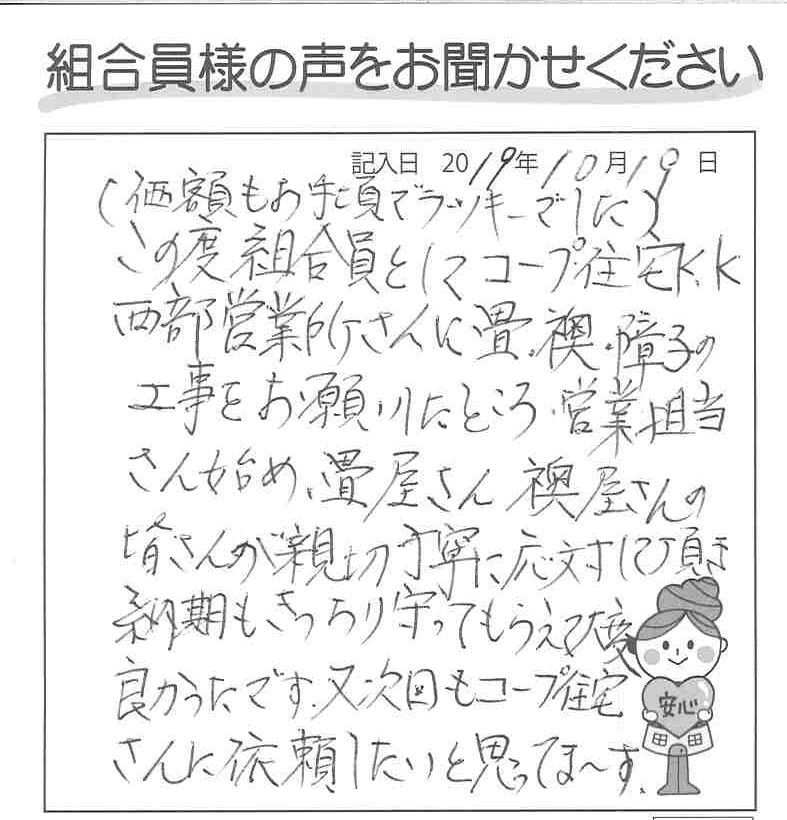 組合員様の声をお聞かせください
記入日 2019年10月10日
(価額もお手頃でラッキーでした)
この度組合員としてコープ住宅K.K
西部営業所さんに畳、襖、障子の
工事をお願いしたところ、営業担当
さん始め、畳屋さん 襖屋さんの
皆さんが親切丁寧に応対して頂き
納期もきっちり守ってもらえて大変
良かったです。又次回もコープ住宅
さんに依頼したいと思ってま〜す。
安心